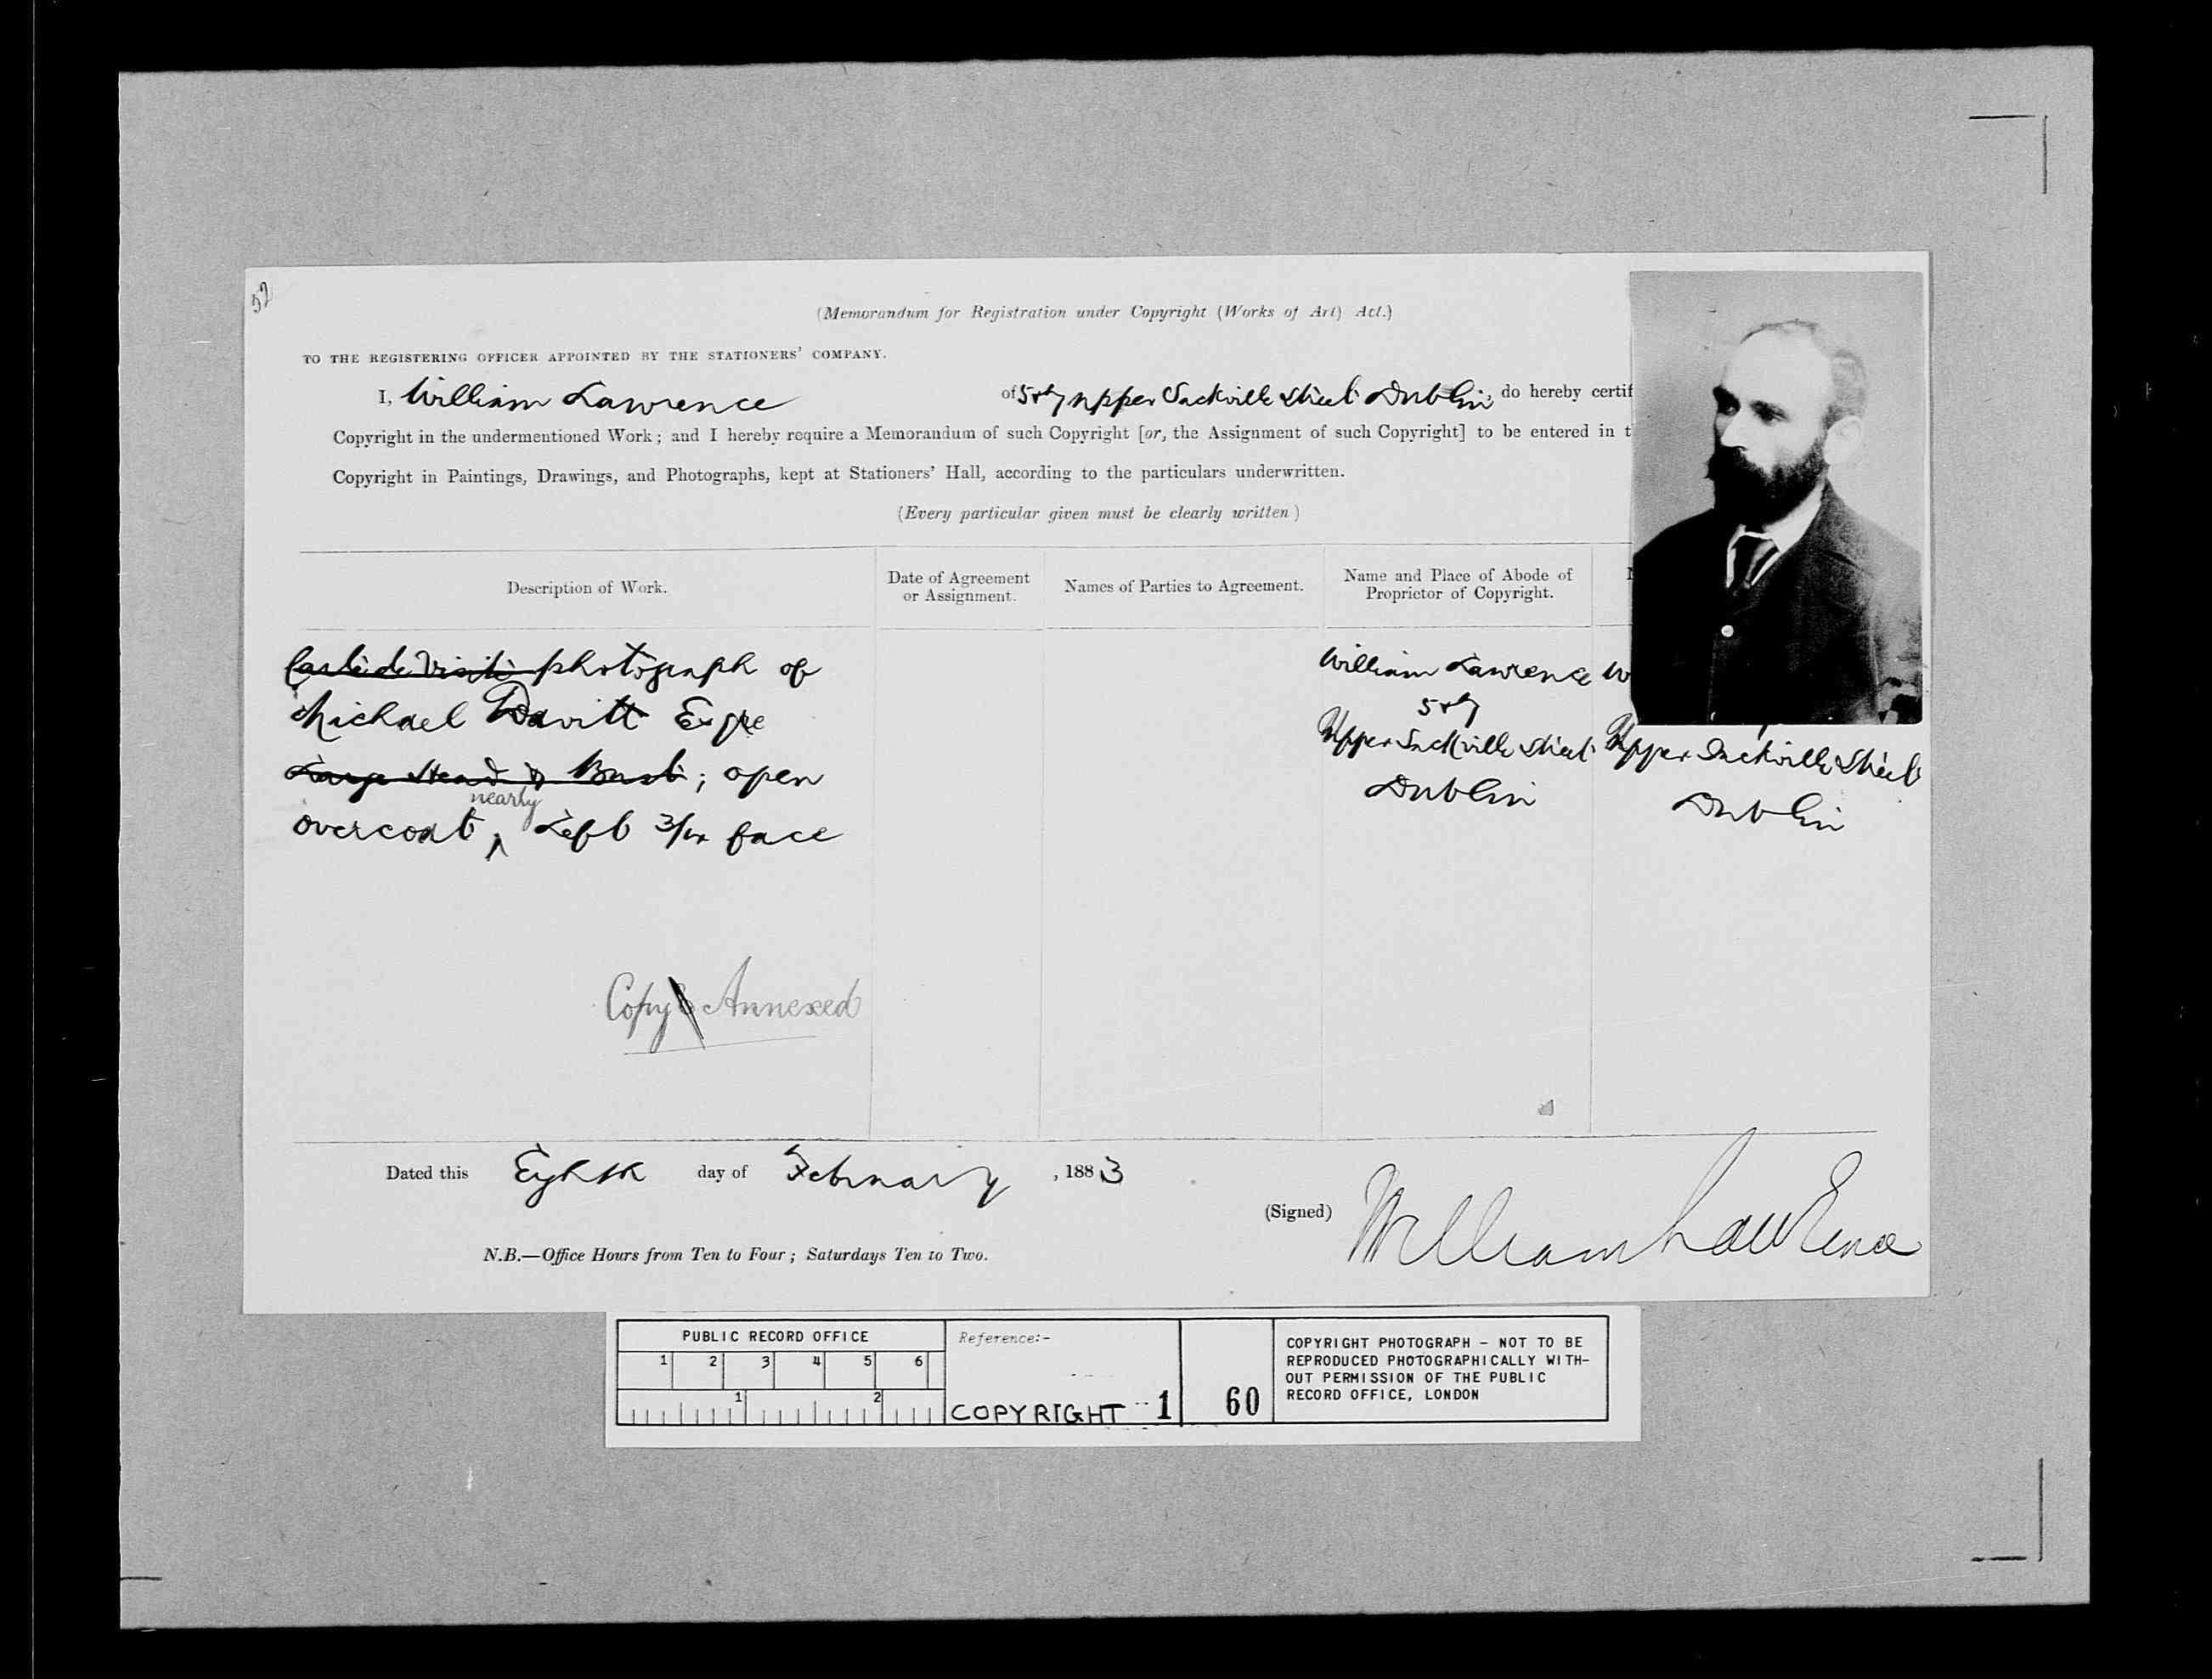 52
(Memorandum for Registration under Copyright (Works of Art) Act.)
TO THE REGISTERING OFFICER APPOINTED BY THE STATIONERS' COMPANY.
I, William Lawrence of 5 & 7 Upper Sackville Street Dublin, do hereby certif
Copyright in the undermentioned Work; and I hereby require a Memorandum of such Copyright [or, the Assignment of such Copyright] to be entered in t
Copyright in Paintings, Drawings, and Photographs, kept at Stationers' Hall, according to the particulars underwritten.
(Every particular given must be clearly written)
Description of Work.
Date of Agreement
or Assignment.
Names of Parties to Agreement.
Name and Place of Abode of
Proprietor of Copyright.
Carte de Visite photograph of
Michael Davitt Esqre
Large Head & Bust; open
nearly
overcoat, Left 3/4 face
Copy Annexed
William Lawrence
5 & 7
Upper Sackville Street
Dublin
W
Upper Sackville Street
Dublin
Dated this Eighth day of February, 1883
(Signed) William Lawrence
N.B.—Office Hours from Ten to Four; Saturdays Ten to Two.
PUBLIC RECORD OFFICE
1 2 3 4 5 6
1 2
Reference:-
COPYRIGHT 1
60
COPYRIGHT PHOTOGRAPH - NOT TO BE
REPRODUCED PHOTOGRAPHICALLY WITH-
OUT PERMISSION OF THE PUBLIC
RECORD OFFICE, LONDON